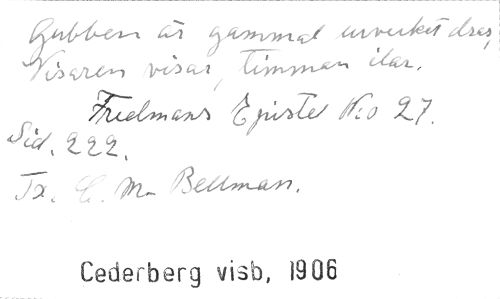 Gubben är gammal urverket dras,
Visaren visar, timman ilar.
Fredmans Epistel N:o 27.
Sid. 222.
Tx. C. M. Bellman.
Cederberg visb, 1906